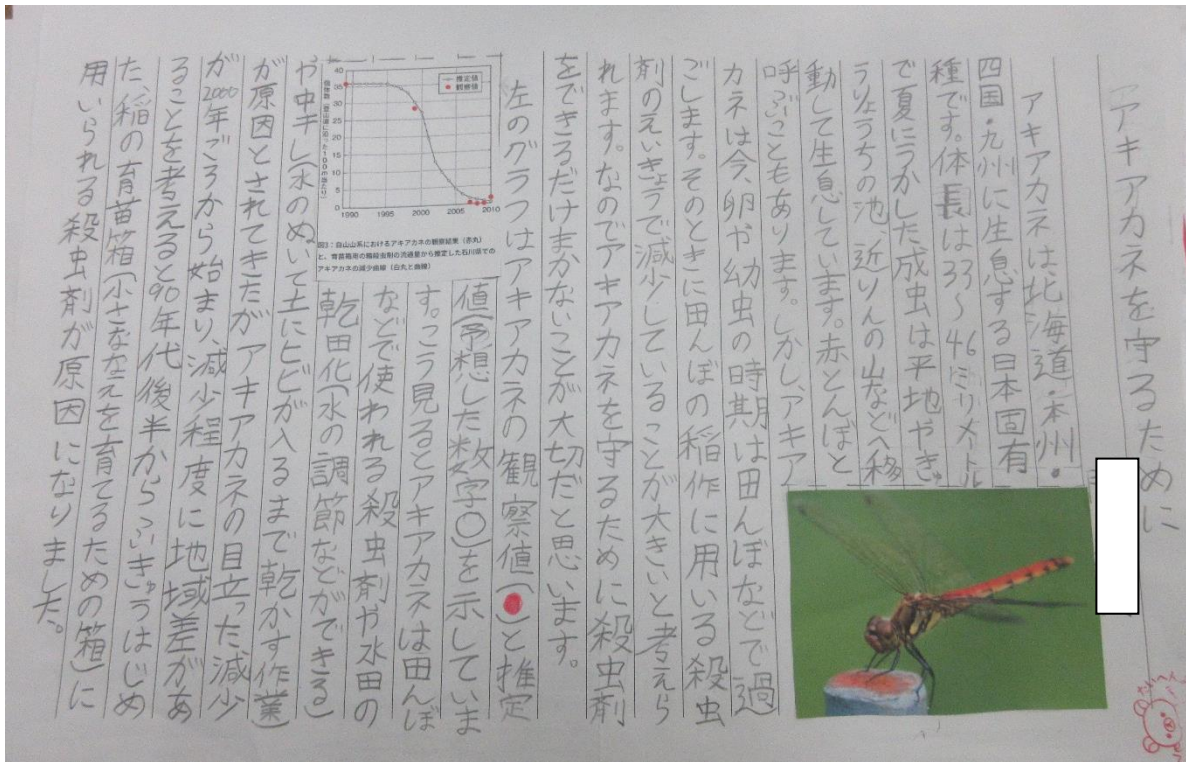 アキアカネを守るために
アキアカネは北海道・本州・
四国・九州に生息する日本固有
種です。体長は33〜46ミリメートル
で夏にうかした成虫は平地やき
ゅうりょうちの池、近りんの山などへ移
動して生息しています。赤とんぼと
呼ぶこともあります。しかし、アキア
カネは今、卵や幼虫の時期は田んぼなどで過
ごします。そのときに田んぼの稲作に用いる殺虫
剤のえいきょうで減少していることが大きいと考えら
れます。なのでアキアカネを守るために殺虫剤
をできるだけまかないことが大切だと思います。
左のグラフはアキアカネの観察値(●)と推定
値(予想した数字〇)を示していま
す。こう見るとアキアカネは田んぼ
などで使われる殺虫剤や水田の
乾田化(水の調節などができる)
や中干し(水のぬいて土にヒビが入るまで乾かす作業)
が原因とされてきたがアキアカネの目立った減少
が2000年ごろから始まり、減少程度に地域差があ
ることを考えると90年代後半からふきゅうはじめ
た、稲の育苗箱(小さななえを育てるための箱)に
用いられる殺虫剤が原因になりました。
個体数(登山道に沿った100m当たり)
推定値
観察値
40
35
30
25
20
15
10
5
0
1990 1995 2000 2005 2010
図3：白山山系におけるアキアカネの観察結果(赤丸)
と、育苗箱用の稲殺虫剤の流通量から推定した石川県での
アキアカネの減少曲線(白丸と曲線)